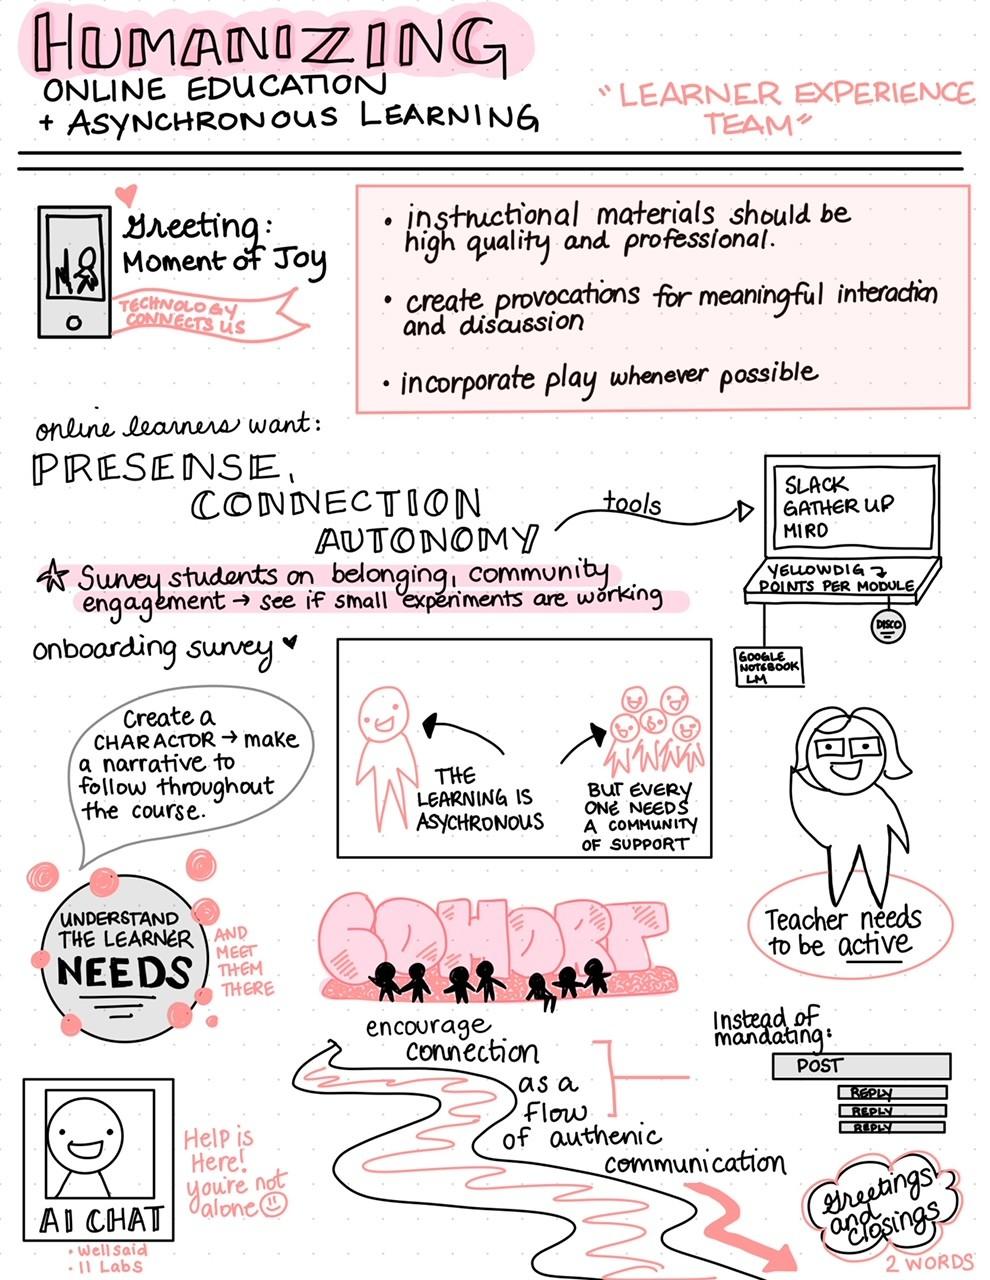 HUMANIZING
ONLINE EDUCATION
+ ASYNCHRONOUS LEARNING
"LEARNER EXPERIENCE
TEAM"
Greeting:
Moment of Joy
TECHNOLOGY
CONNECTS US
• instructional materials should be
high quality and professional.
• create provocations for meaningful interaction
and discussion
• incorporate play whenever possible
online learners want:
PRESENSE,
CONNECTION
AUTONOMY
tools
SLACK
GATHER UP
MIRO
YELLOWDIG
POINTS PER MODULE
DISCO
GOOGLE
NOTEBOOK
LM
☆ Survey students on belonging, community
engagement → see if small experiments are working
onboarding survey ♥
Create a
CHARACTOR → make
a narrative to
follow throughout
the course.
THE
LEARNING IS
ASYCHRONOUS
BUT EVERY
ONE NEEDS
A COMMUNITY
OF SUPPORT
UNDERSTAND
THE LEARNER
NEEDS
AND
MEET
THEM
THERE
COHORT
Teacher needs
to be active
encourage
connection
as a
flow
of authenic
communication
Instead of
mandating:
POST
REPLY
REPLY
REPLY
AI CHAT
• Wellsaid
• 11 Labs
Help is
Here!
you're not
alone
Greetings
and
closings
2 WORDS